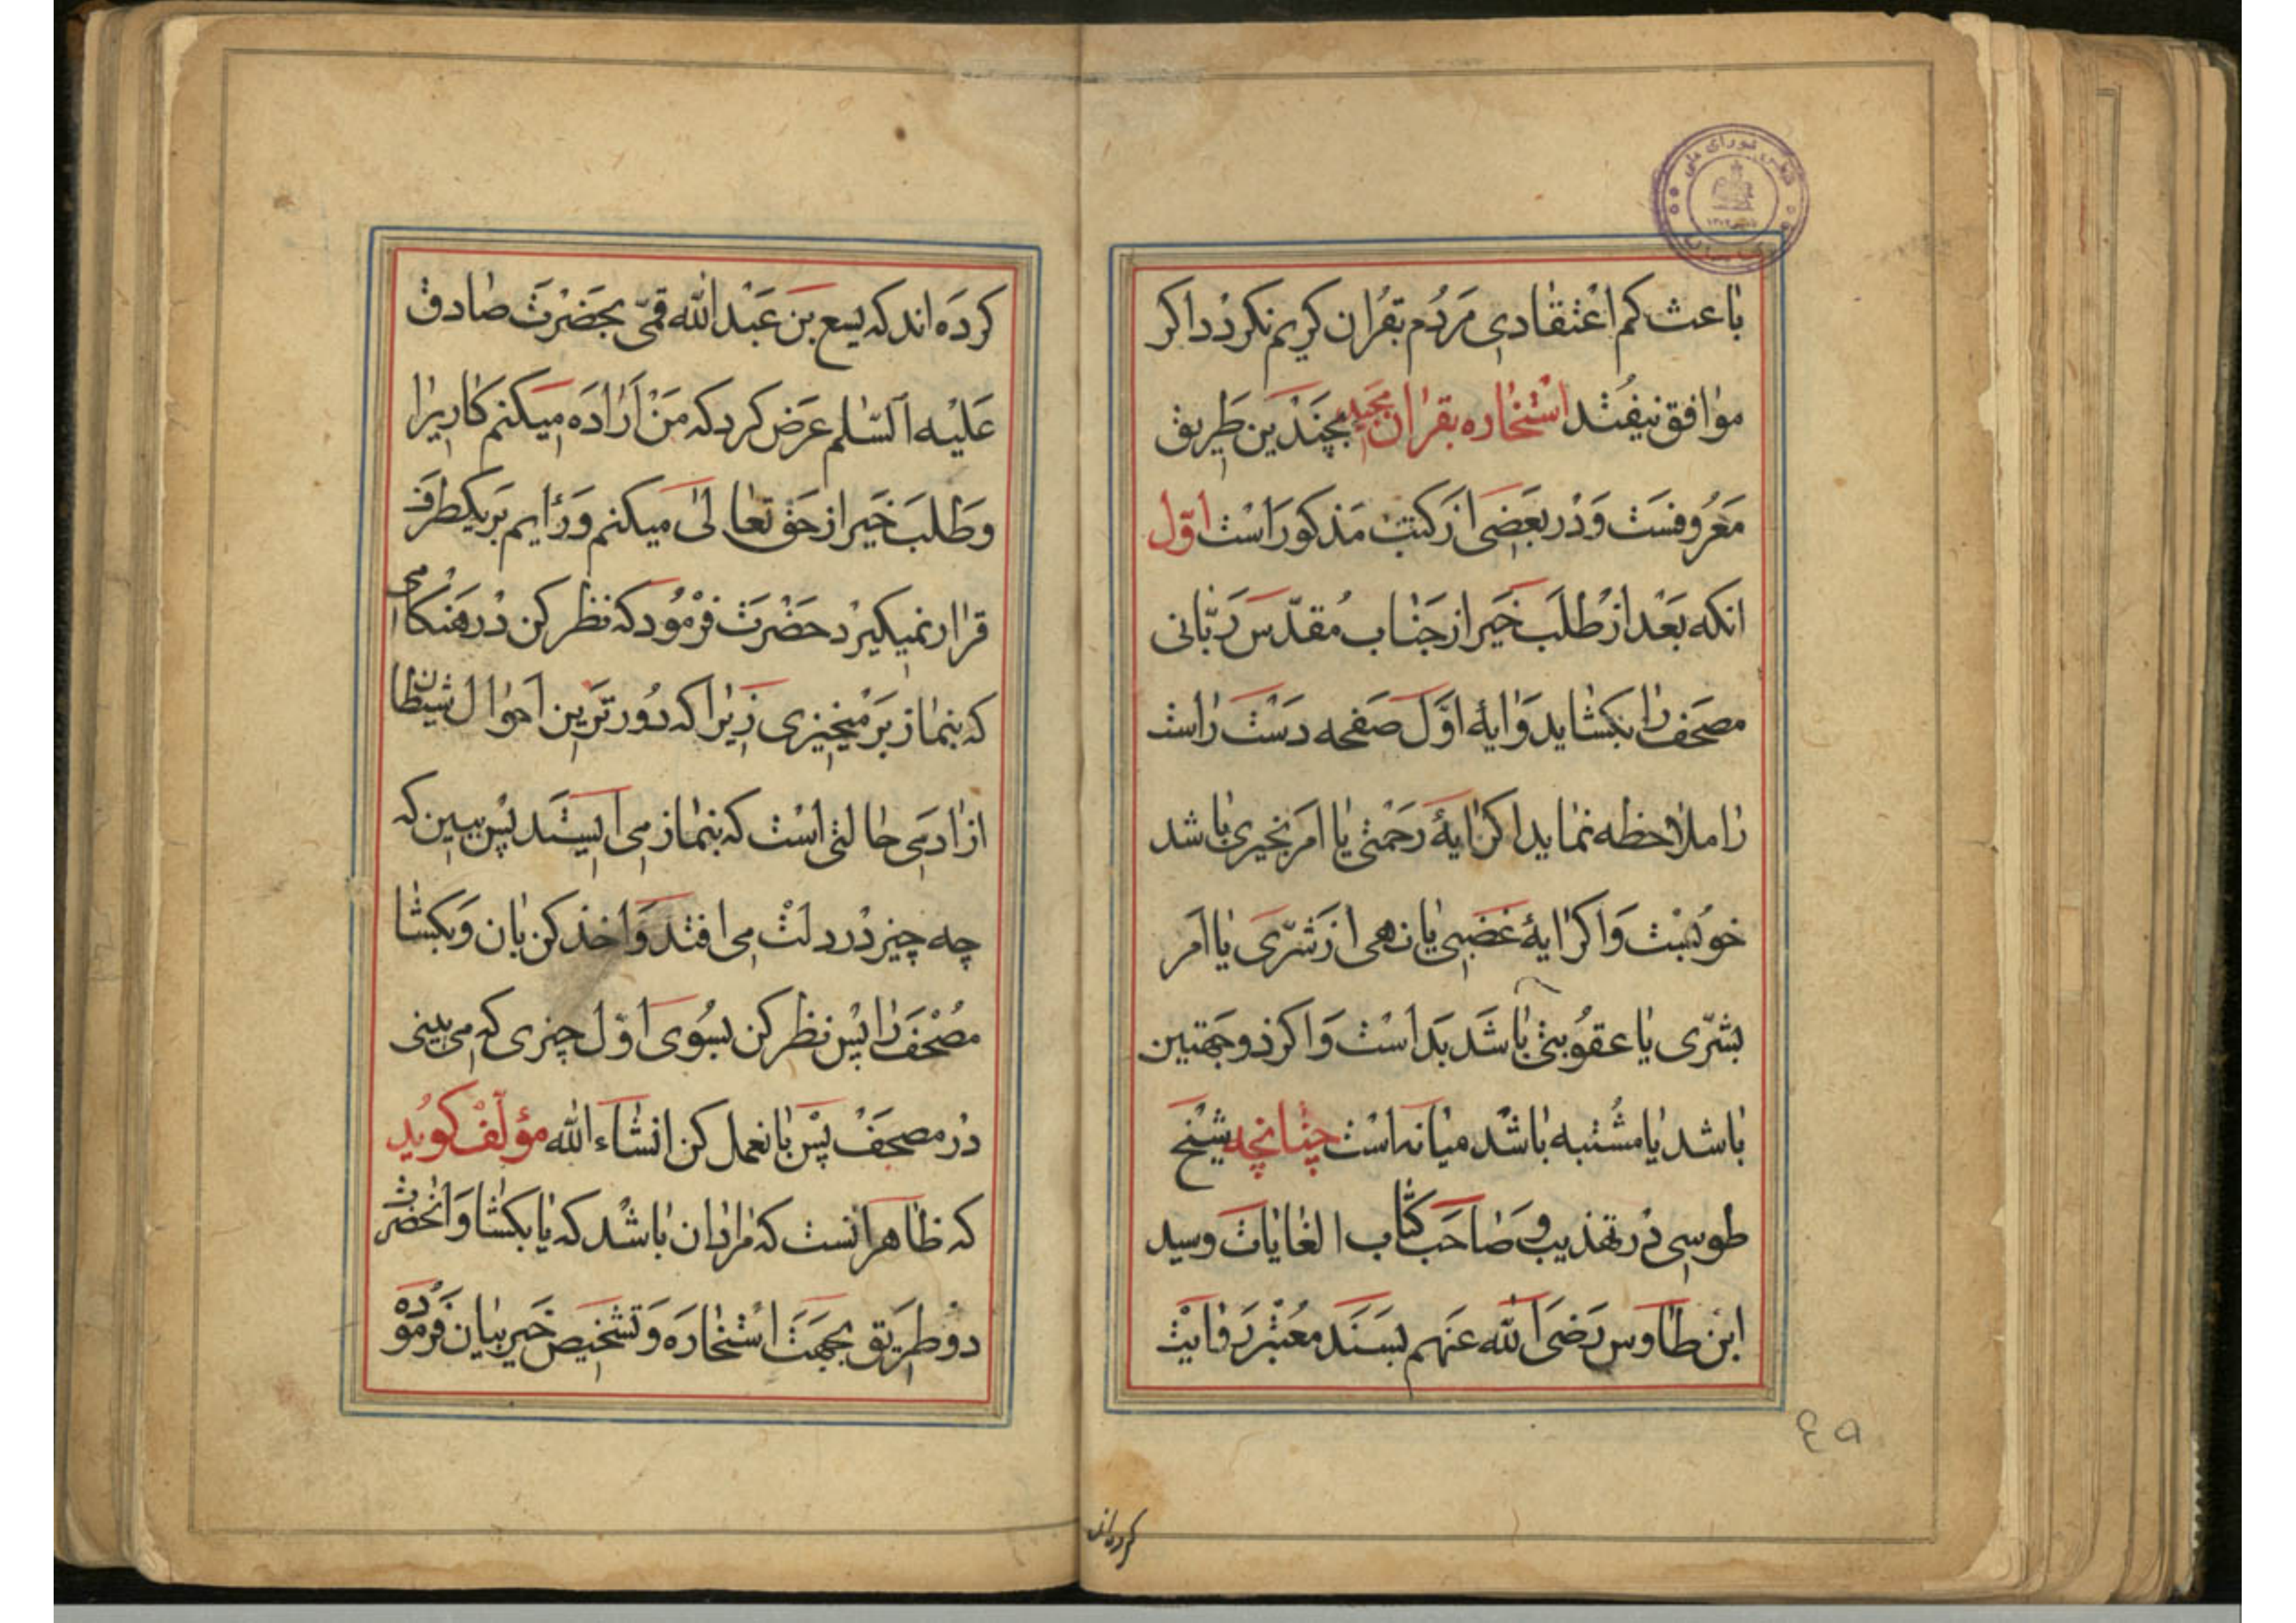 باعث کم اعتقادی مردم بقران کریم نکردد اکر
موافق نیفتد استخاره بقران مجید بچندین طریق
معروفست و در بعضی از کتب مذکور است اول
انکه بعد از طلب خیر از جناب مقدس ربانی
مصحف را بکشاید و ایهٔ اول صفحه دست راست
را ملاحظه نماید اکر ایهٔ رحمتی یا امر بخیری باشد
خوبست و اکر ایهٔ غضبی یا نهی از شری یا امر
بشری یا عقوبتی باشد بد است و اکر ذو جهتین
باشد یا مشتبه باشد میانه است چنانچه شیخ
طوسی در تهذیب و صاحب کتاب الغایات و سید
ابن طاوس رضی الله عنهم بسند معتبر روایت
کرده‌اند
٤٥
کرده اند که یسع بن عبد الله قمی بحضرت صادق
علیه السلم عرض کرد که من اراده میکنم کاریرا
و طلب خیر از حق تعالی میکنم و رایم بر یکطرف
قرار نمیکیرد حضرت فرمود که نظر کن در هنکامی
که بنماز برمیخیزی زیرا که دورترین احوال شیطان
از ادمی حالتی است که بنماز می ایستد پس ببین که
چه چیز در دلت می افتد و اخذ کن بان و بکشا
مصحف را پس نظر کن بسوی اول چیزی که می بینی
در مصحف پس بانعمل کن انشاء الله مؤلف کوید
که ظاهر انست که مراد ان باشد که یا بکشا و انحضرت
دو طریق بجهت استخاره و تشخیص خیر بیان فرموده
مجلس شورای ملی